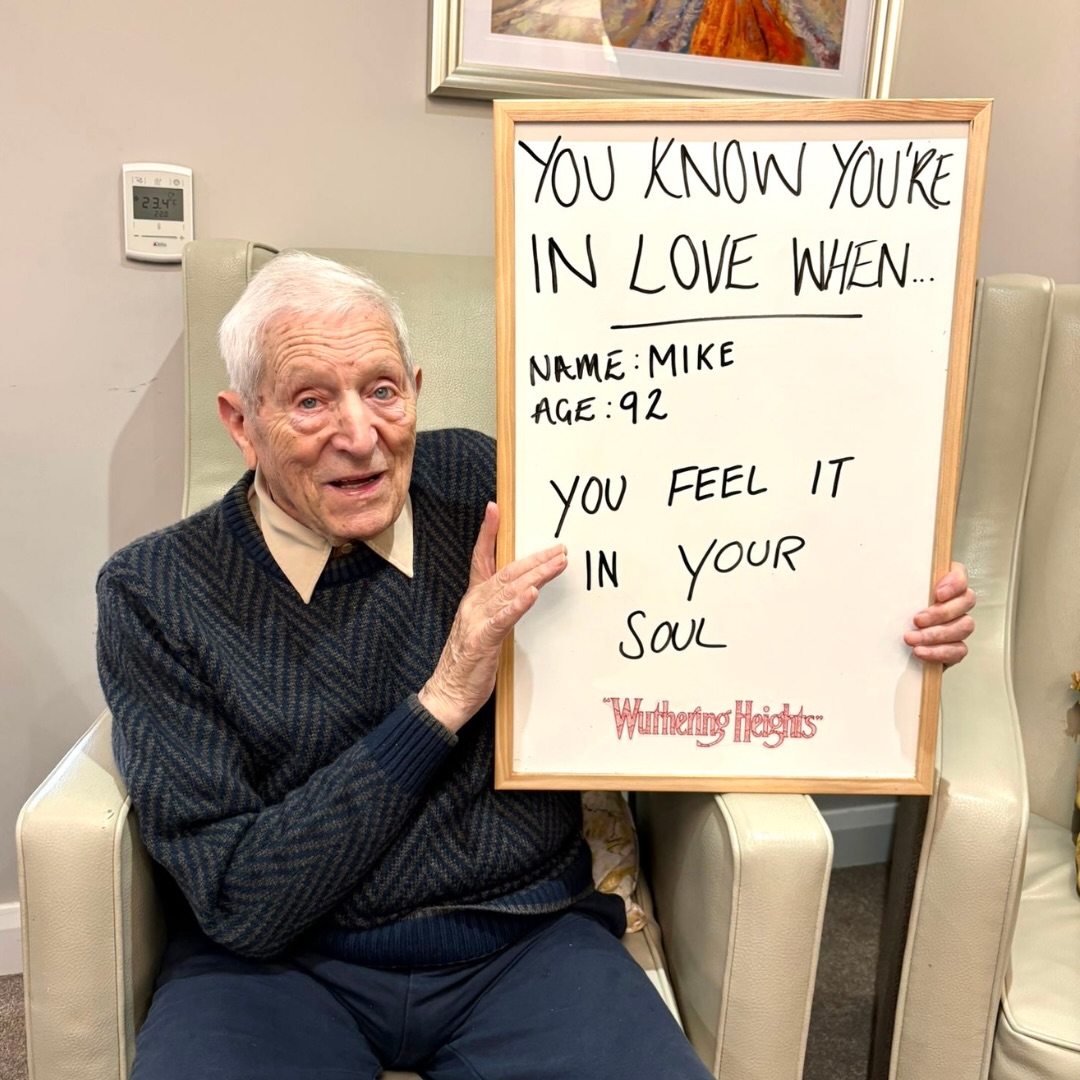 23.4°C
YOU KNOW YOU'RE
IN LOVE WHEN...
NAME: MIKE
AGE: 92
YOU FEEL IT
IN YOUR
SOUL
"Wuthering Heights"